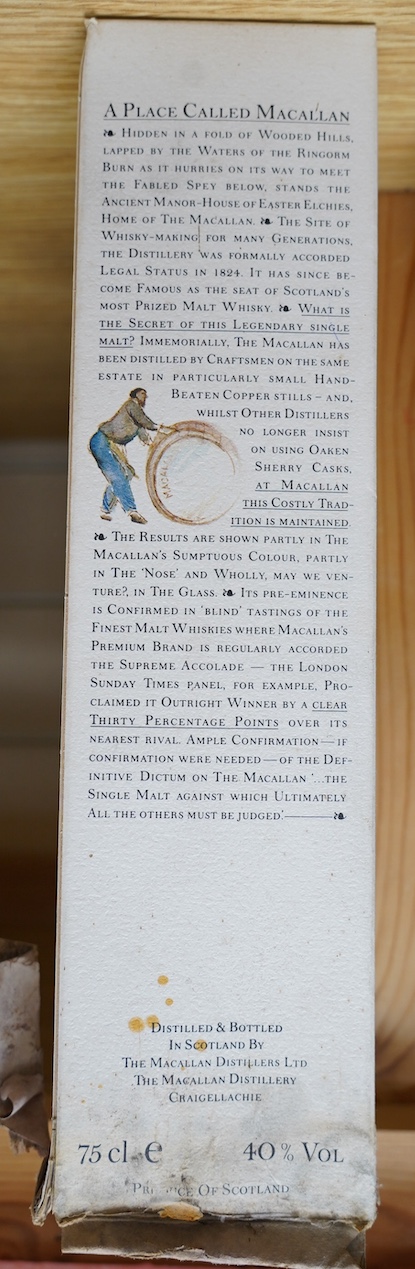 A Place Called Macallan
❧ Hidden in a fold of Wooded Hills,
lapped by the Waters of the Ringorm
Burn as it hurries on its way to meet
the Fabled Spey below, stands the
Ancient Manor-House of Easter Elchies,
Home of The Macallan. ❧ The Site of
Whisky-making for many Generations,
the Distillery was formally accorded
Legal Status in 1824. It has since be-
come Famous as the seat of Scotland's
most Prized Malt Whisky. ❧ What is
the Secret of this Legendary single
malt? Immemorially, The Macallan has
been distilled by Craftsmen on the same
estate in particularly small Hand-
Beaten Copper stills – and,
whilst Other Distillers
no longer insist
on using Oaken
Sherry Casks,
at Macallan
this Costly Trad-
ition is maintained.
❧ The Results are shown partly in The
Macallan's Sumptuous Colour, partly
in The 'Nose' and Wholly, may we ven-
ture?, in The Glass. ❧ Its pre-eminence
is Confirmed in 'blind' tastings of the
Finest Malt Whiskies where Macallan's
Premium Brand is regularly accorded
the Supreme Accolade — the London
Sunday Times panel, for example, Pro-
claimed it Outright Winner by a clear
Thirty Percentage Points over its
nearest rival. Ample Confirmation — if
confirmation were needed — of the Def-
initive Dictum on The Macallan '...the
Single Malt against which Ultimately
All the others must be judged'.——❧
Distilled & Bottled
In Scotland By
The Macallan Distillers Ltd
The Macallan Distillery
Craigellachie
75 cl e 40% Vol
Of Scotland